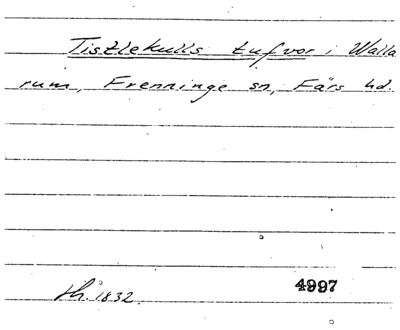 Tistlekulls tufvor i Walla
rum, Frenninge sn, Färs hd.
4997
1832.